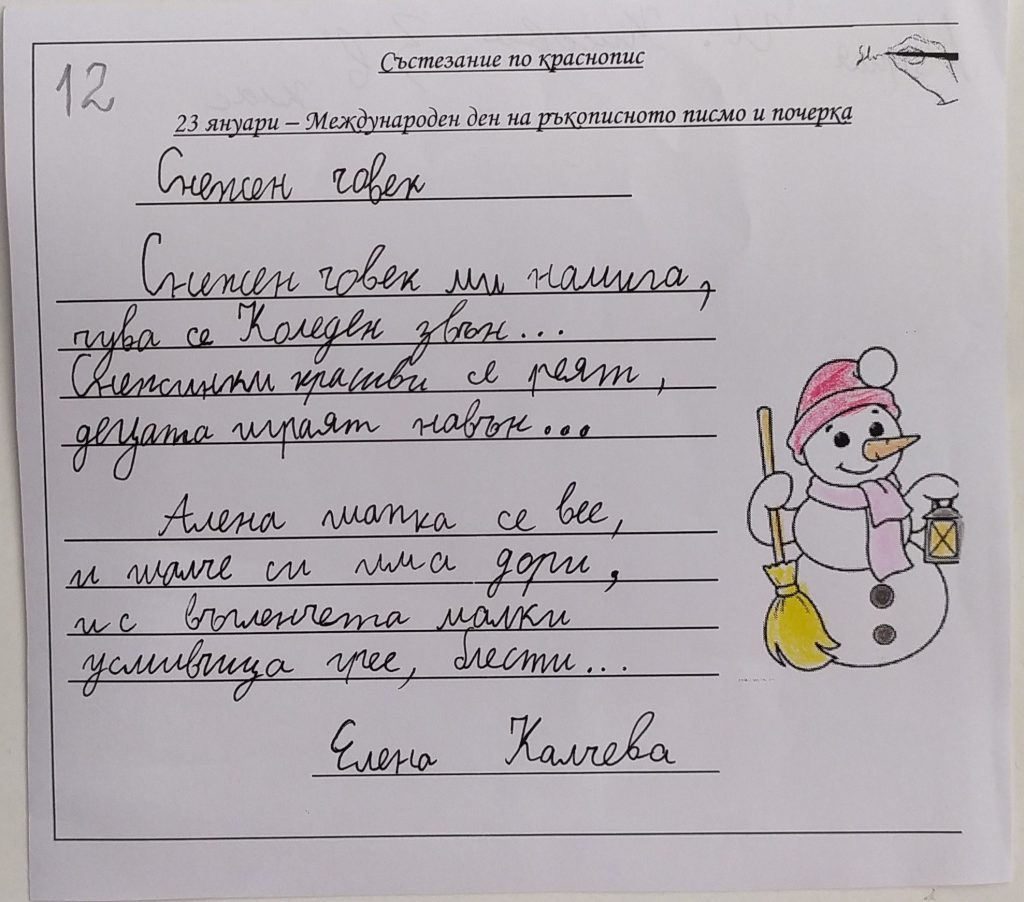 12
Състезание по краснопис
23 януари – Международен ден на ръкописното писмо и почерка
Снежен човек
Снежен човек ми намига,
чува се Коледен звън...
Снежинки красиви се реят,
децата играят навън...
Алена шапка се вее,
и шалче си има дори,
и с въгленчета малки
усмивчица грее, блести...
Елена Калчева